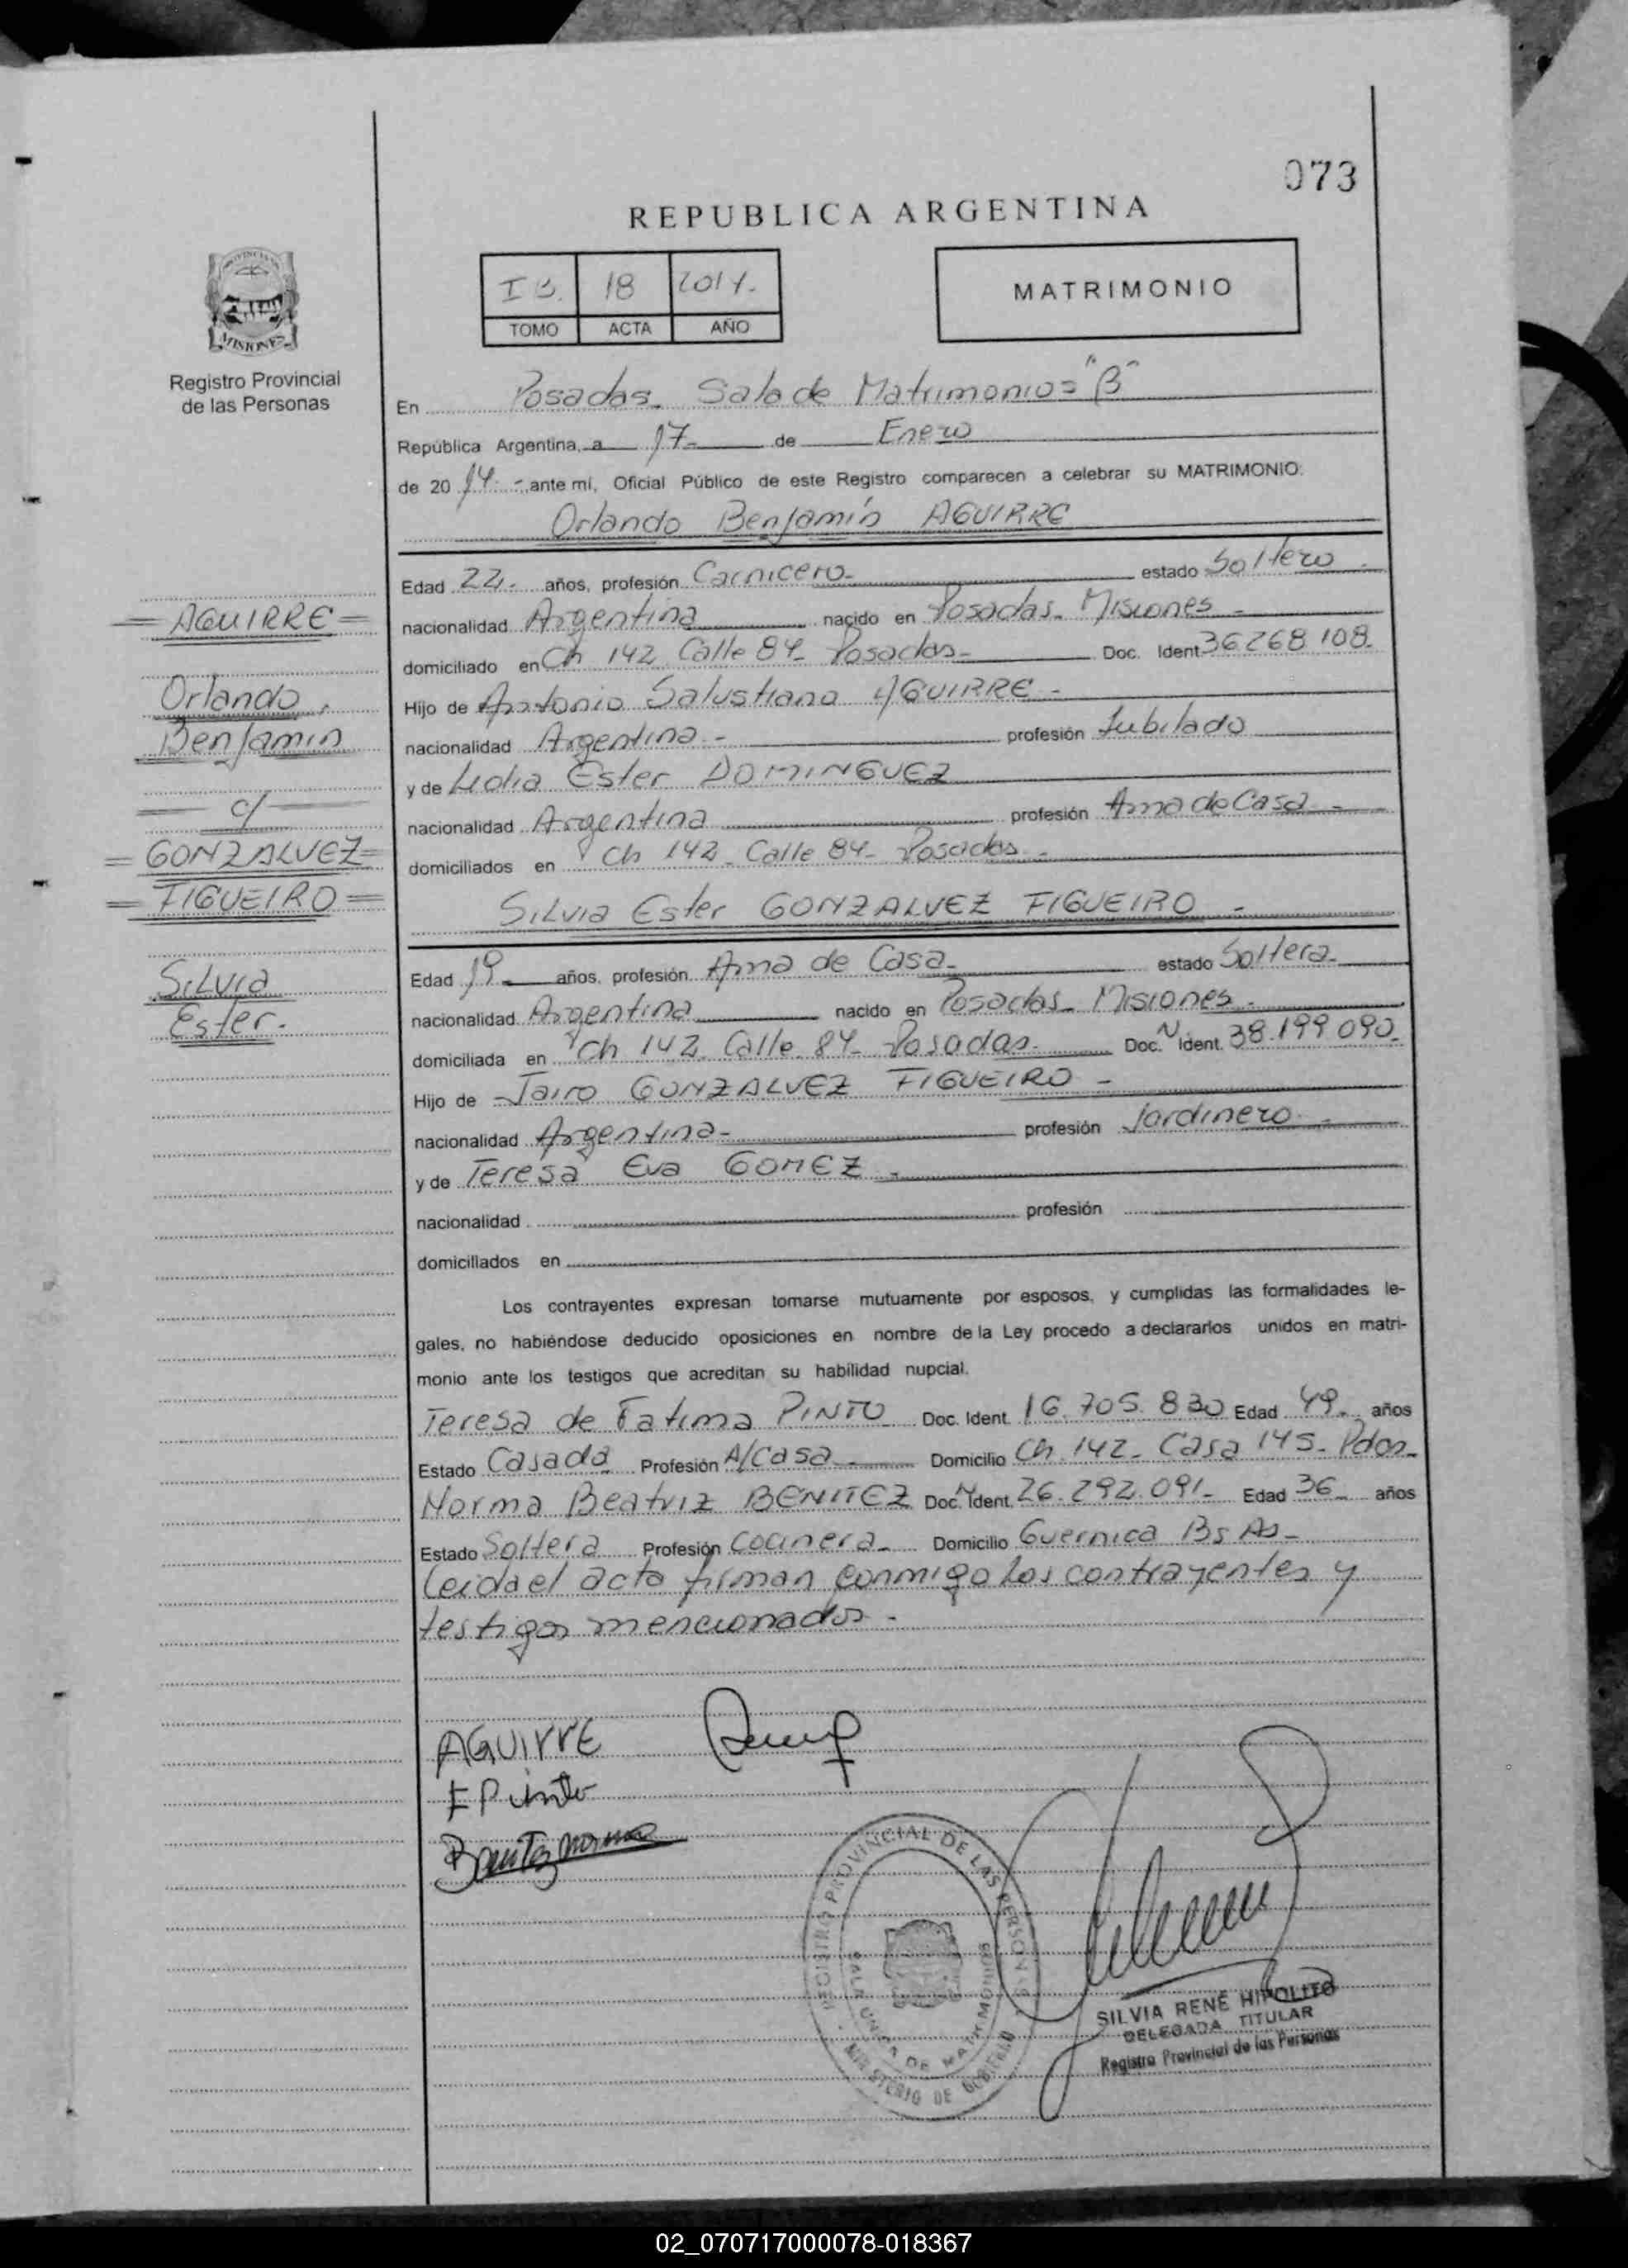 073
REPUBLICA ARGENTINA
I B. 18 2014.
TOMO ACTA AÑO
MATRIMONIO
MISIONES
Registro Provincial
de las Personas
En Posadas. Sala de Matrimonios "B"
República Argentina, a 17 de Enero
de 2014 - ante mí, Oficial Público de este Registro comparecen a celebrar su MATRIMONIO:
Orlando Benjamín AGUIRRE
Edad 22. años, profesión Carnicero - estado Soltero -
nacionalidad Argentina nacido en Posadas - Misiones -
domiciliado en Ch 142 Calle 84 - Posadas - Doc. Ident. 36.268.108.
Hijo de Antonio Salustiano AGUIRRE -
nacionalidad Argentina - profesión Jubilado
y de Lidia Ester DOMINGUEZ
nacionalidad Argentina profesión Ama de Casa -
domiciliados en Ch 142 - Calle 84 - Posadas -
Silvia Ester GONZALVEZ FIGUEIRO -
Edad 19 años, profesión Ama de Casa - estado Soltera -
nacionalidad Argentina nacido en Posadas - Misiones -
domiciliada en Ch 142 Calle 84 - Posadas - Doc. N Ident. 38.199.090.
Hijo de Jairo GONZALVEZ FIGUEIRO -
nacionalidad Argentina - profesión Jardinero -
y de Teresa Eva GOMEZ -
nacionalidad profesión
domiciliados en
Los contrayentes expresan tomarse mutuamente por esposos, y cumplidas las formalidades le-
gales, no habiéndose deducido oposiciones en nombre de la Ley procedo a declararlos unidos en matri-
monio ante los testigos que acreditan su habilidad nupcial.
Teresa de Fatima PINTO Doc. Ident. 16.705.830 Edad 49. años
Estado Casada Profesión A/Casa - Domicilio Ch. 142 - Casa 145 - Pdas -
Norma Beatriz BENITEZ Doc. N Ident. 26.292.091 - Edad 36 años
Estado Soltera Profesión Cocinera - Domicilio Guernica Bs As -
Leida el acta firman conmigo los contrayentes y
testigos mencionados -
= AGUIRRE =
Orlando
Benjamin
c/
= GONZALVEZ =
= FIGUEIRO =
Silvia
Ester.
AGUIRRE
Pinto
Benitez Norma
REGISTRO PROVINCIAL DE LAS PERSONAS
SALA UNICA DE MATRIMONIOS
MINISTERIO DE GOBIERNO
SILVIA RENÉ HIPOLITO
DELEGADA TITULAR
Registro Provincial de las Personas
02_070717000078-018367